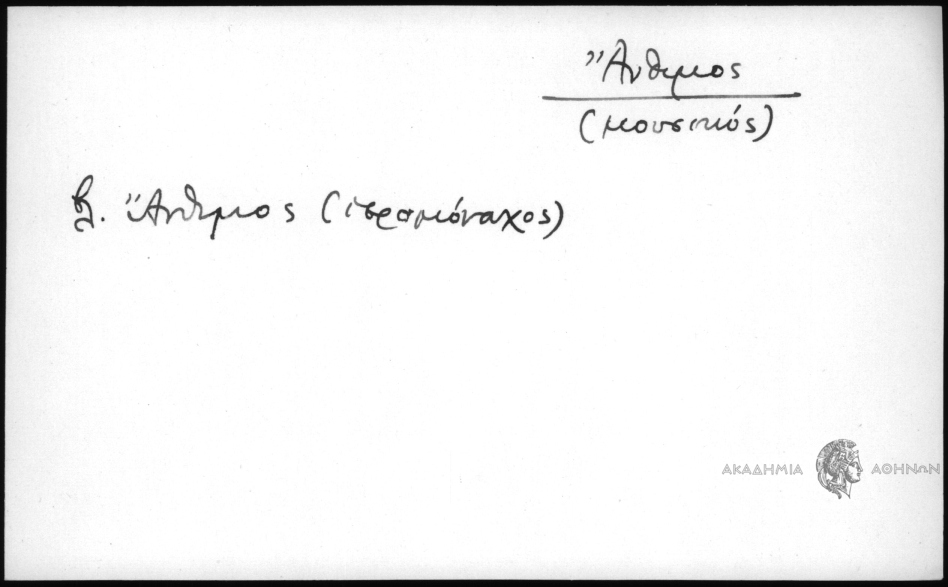 Ἄνθιμος
(μουσικός)
βλ. Ἄνθιμος (ἱερομόναχος)
ΑΚΑΔΗΜΙΑ ΑΘΗΝΩΝ